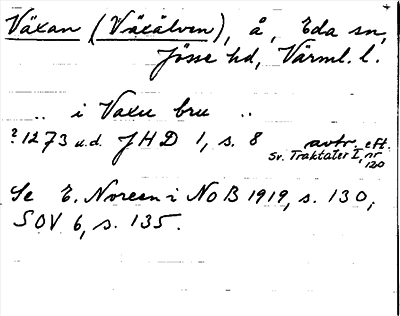 Växan (Växälven), å, Eda sn,
Jösse hd, Värml. l.
.. i Vaxu bru ..
? 1273 u.d. JHD 1, s. 8 avtr. eft.
Sv. Traktater I, nr 120
Se E. Noreen i NoB 1919, s. 130,
SOV 6, s. 135.